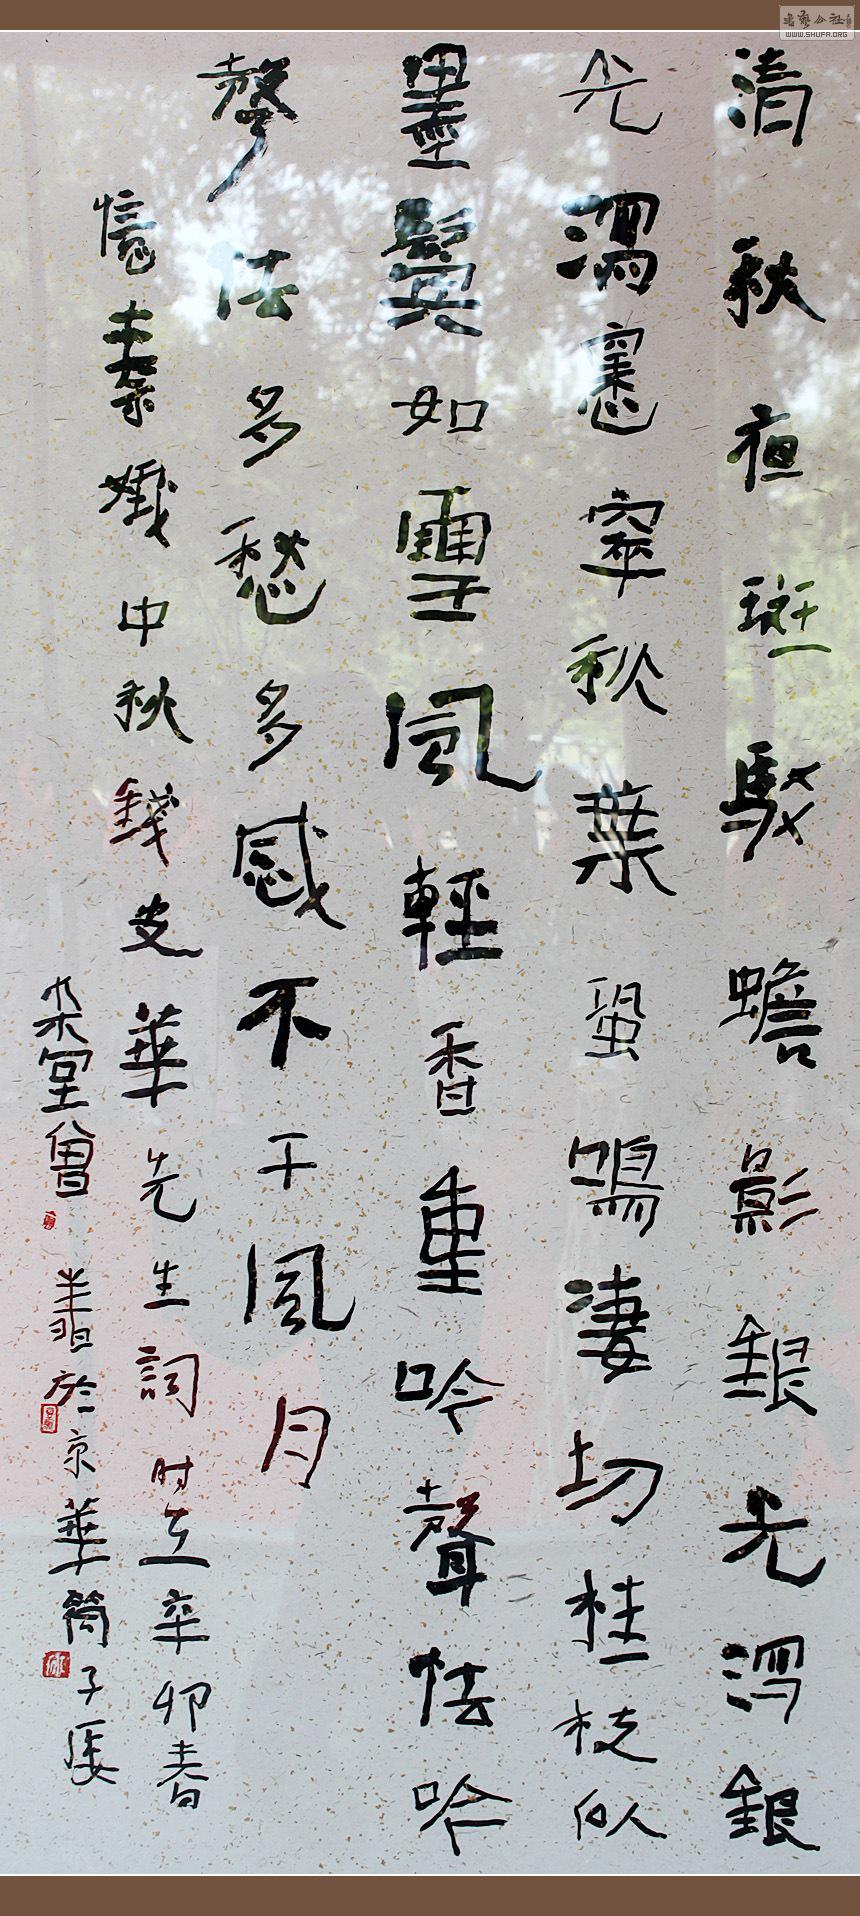 書藝公社
WWW.SHUFA.ORG
清秋夜斑駁蟾影銀光瀉銀
光瀉窸窣秋葉蛩鳴淒切桂枝似
墨鬢如雪風輕香重吟聲怯吟
聲怯多愁多感不干風月
憶秦娥中秋錢華先生詞时在辛卯春
堂曾書於京華筒子